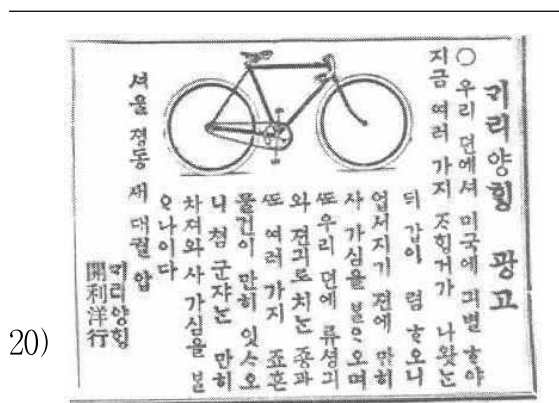 ᄀᆡ리양ᄒᆡᆼ 광고
○ 우리 뎐에셔 미국에 긔별 ᄒᆞ야
지금 여러 가지 ᄌᆞᄒᆡᆼ거가 나왓ᄂᆞᆫ
ᄃᆡ 갑이 렴 ᄒᆞ오니
업셔지기 젼에 만히
사 가심을 ᄇᆞᆯ으오며
ᄯᅩ 우리 뎐에 류셩긔
와 젼긔로 치ᄂᆞᆫ 죵과
ᄯᅩ 여러 가지 죠흔
물건이 만히 잇ᄉᆞ오
니 쳠 군ᄌᆞᄂᆞᆫ 만히
차져와 사 가심을 ᄇᆞᆯ
오나이다
셔울 졍동 새 대궐 압
ᄀᆡ리양ᄒᆡᆼ
開利洋行
20)